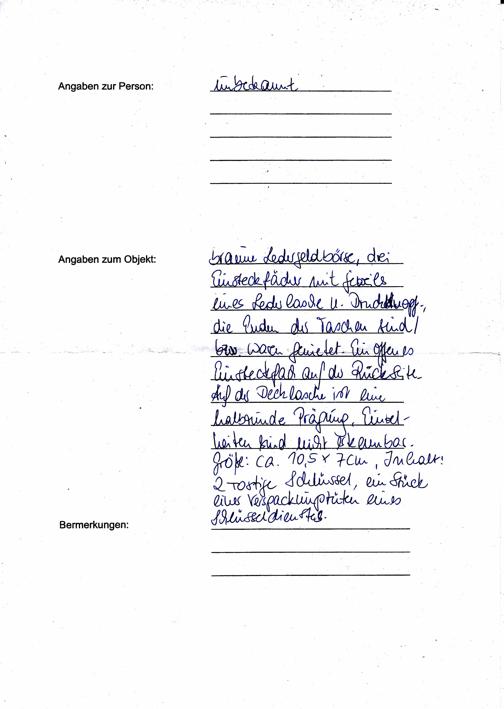 Angaben zur Person: unbekannt
Angaben zum Objekt: braune Ledergeldbörse, drei
Einsteckfächer mit jeweils
eines Lederlasche u. Druckknopf,
die Enden der Taschen sind/
bzw. waren genietet. Ein offenes
Einsteckfach auf der Rückseite
Auf der Decklasche ist eine
halbrunde Prägung, Einzel-
heiten sind nicht erkennbar.
Größe: ca. 10,5 x 7cm, Inhalt:
2 rostige Schlüssel, ein Stück
einer Verpackungstüten eines
Schlüsseldienstes.
Bermerkungen: